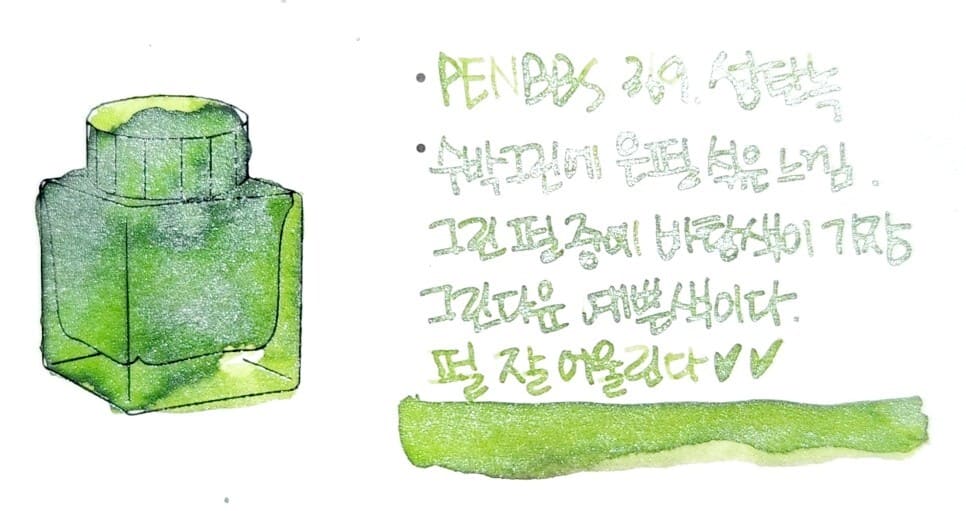 • PENBBS 269. 성탄녹
• 수박그린에 은펄 섞은 느낌.
그린펄 중에 바탕색이 가장
그린다운 예쁜색이다.
펄 잘 어울린다♥♥